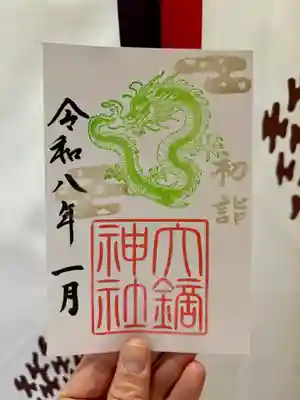 初詣
令和八年一月
大鏑
神社